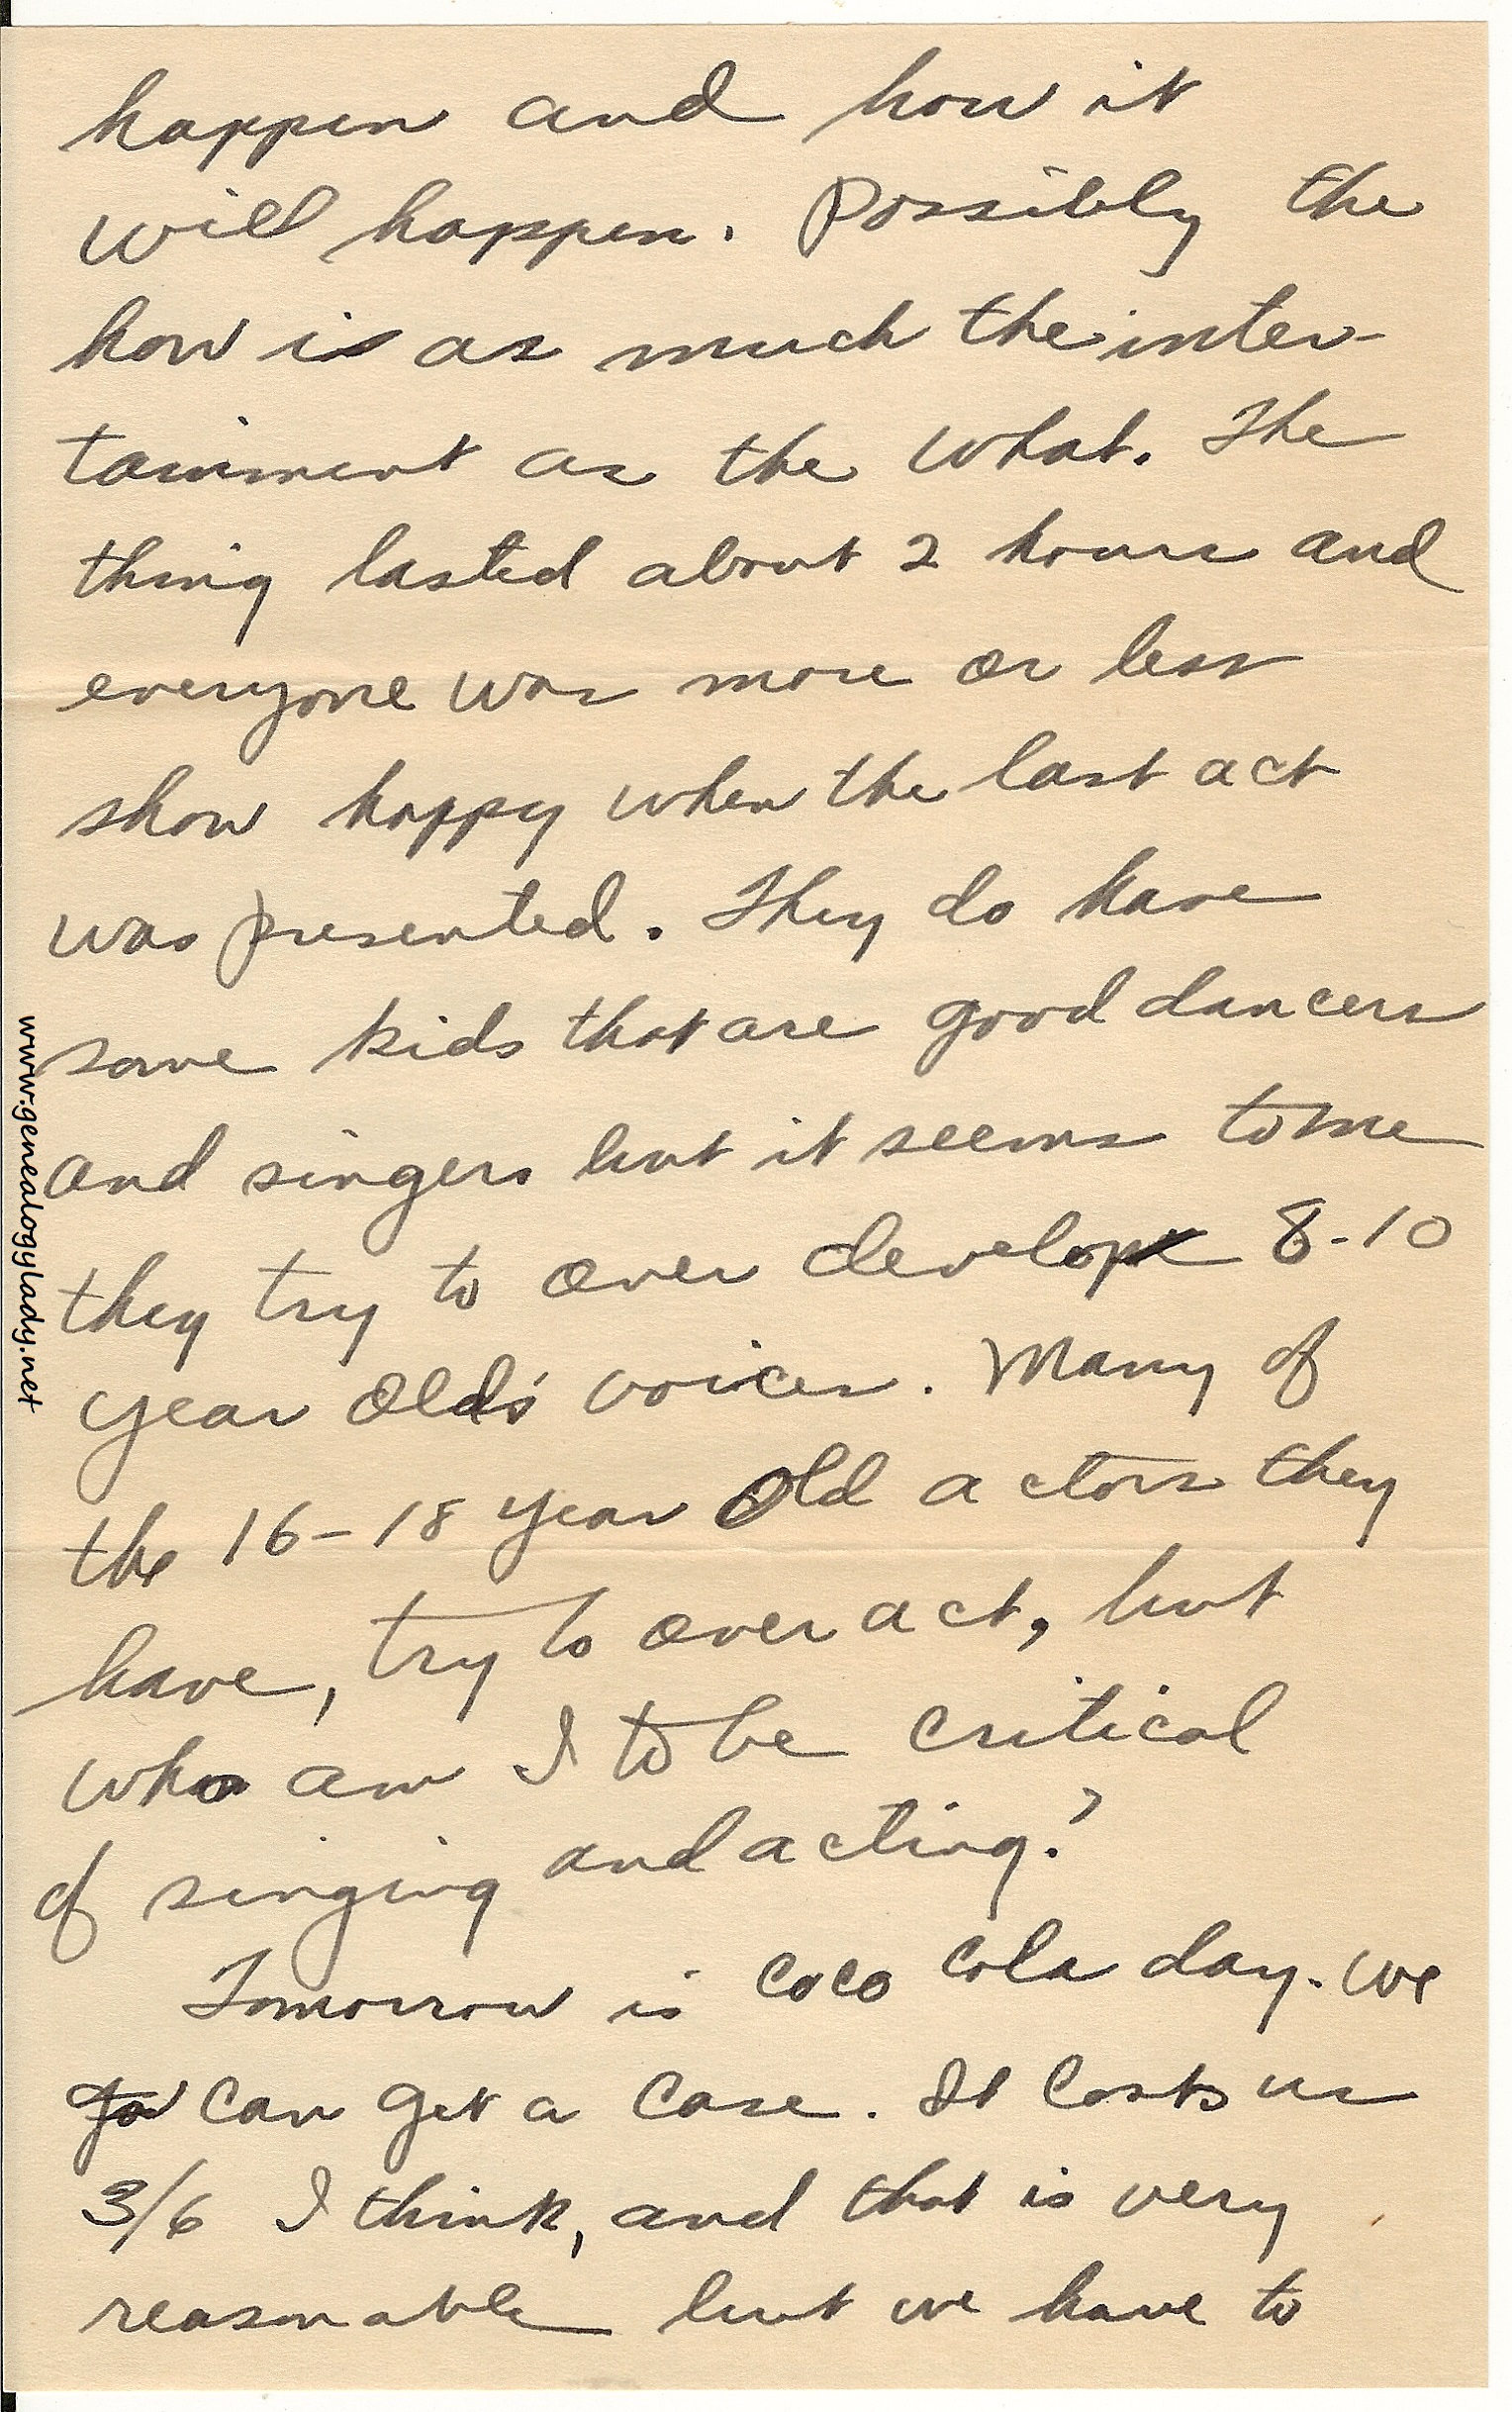 happen and how it
will happen. Possibly the
how is as much the inter-
tainment as the what. The
thing lasted about 2 hours and
everyone was more or less
show happy when the last act
was presented. They do have
some kids that are good dancers
and singers but it seems to me
they try to over develop 8-10
year old's voices. Many of
the 16-18 year old actors they
have, try to over act, but
who am I to be critical
of singing and acting?
Tomorrow is coco cola day. We
go can get a case. It costs us
3/6 I think, and that is very
reasonable but we have to
www.genealogylady.net